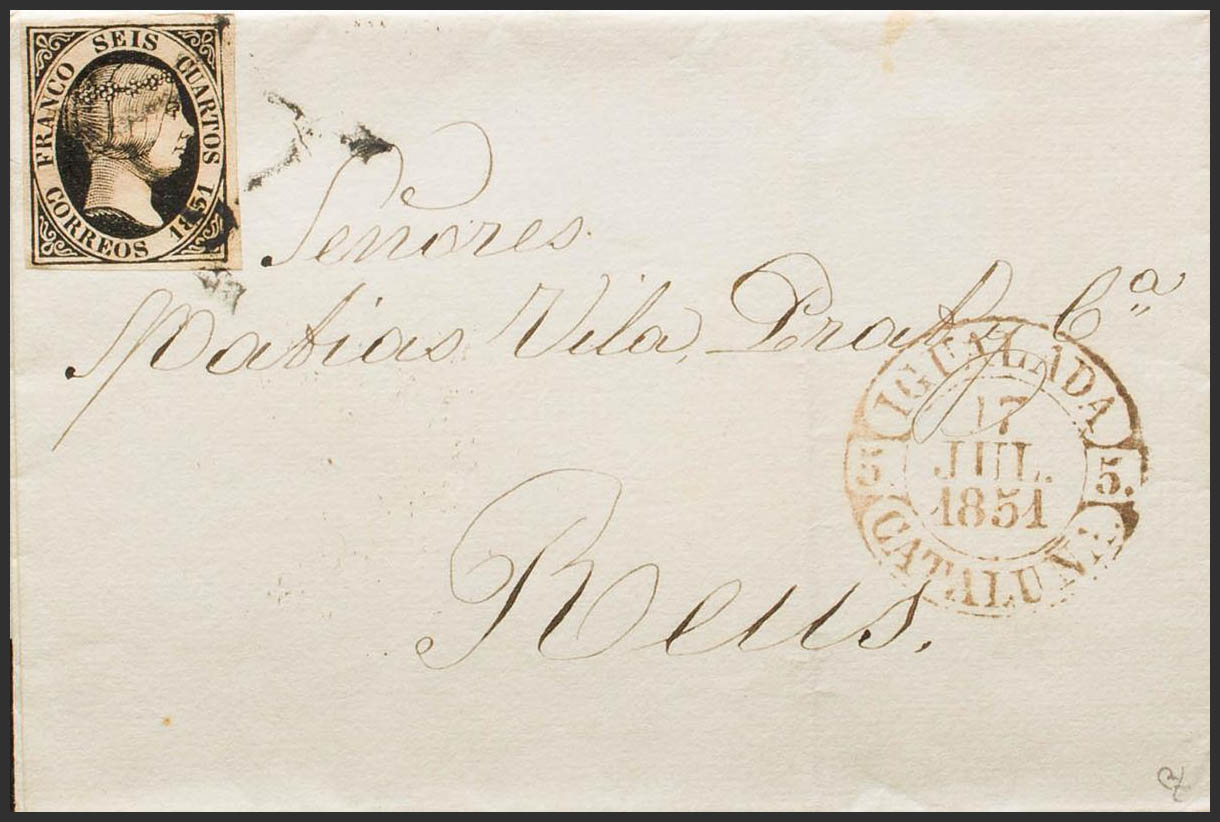 FRANCO SEIS CUARTOS
CORREOS 1851
Señores
Matias Vila, Prat y Cª
IGUALADA
17
JUL.
1851
5. 5.
CATALUÑA
Reus.